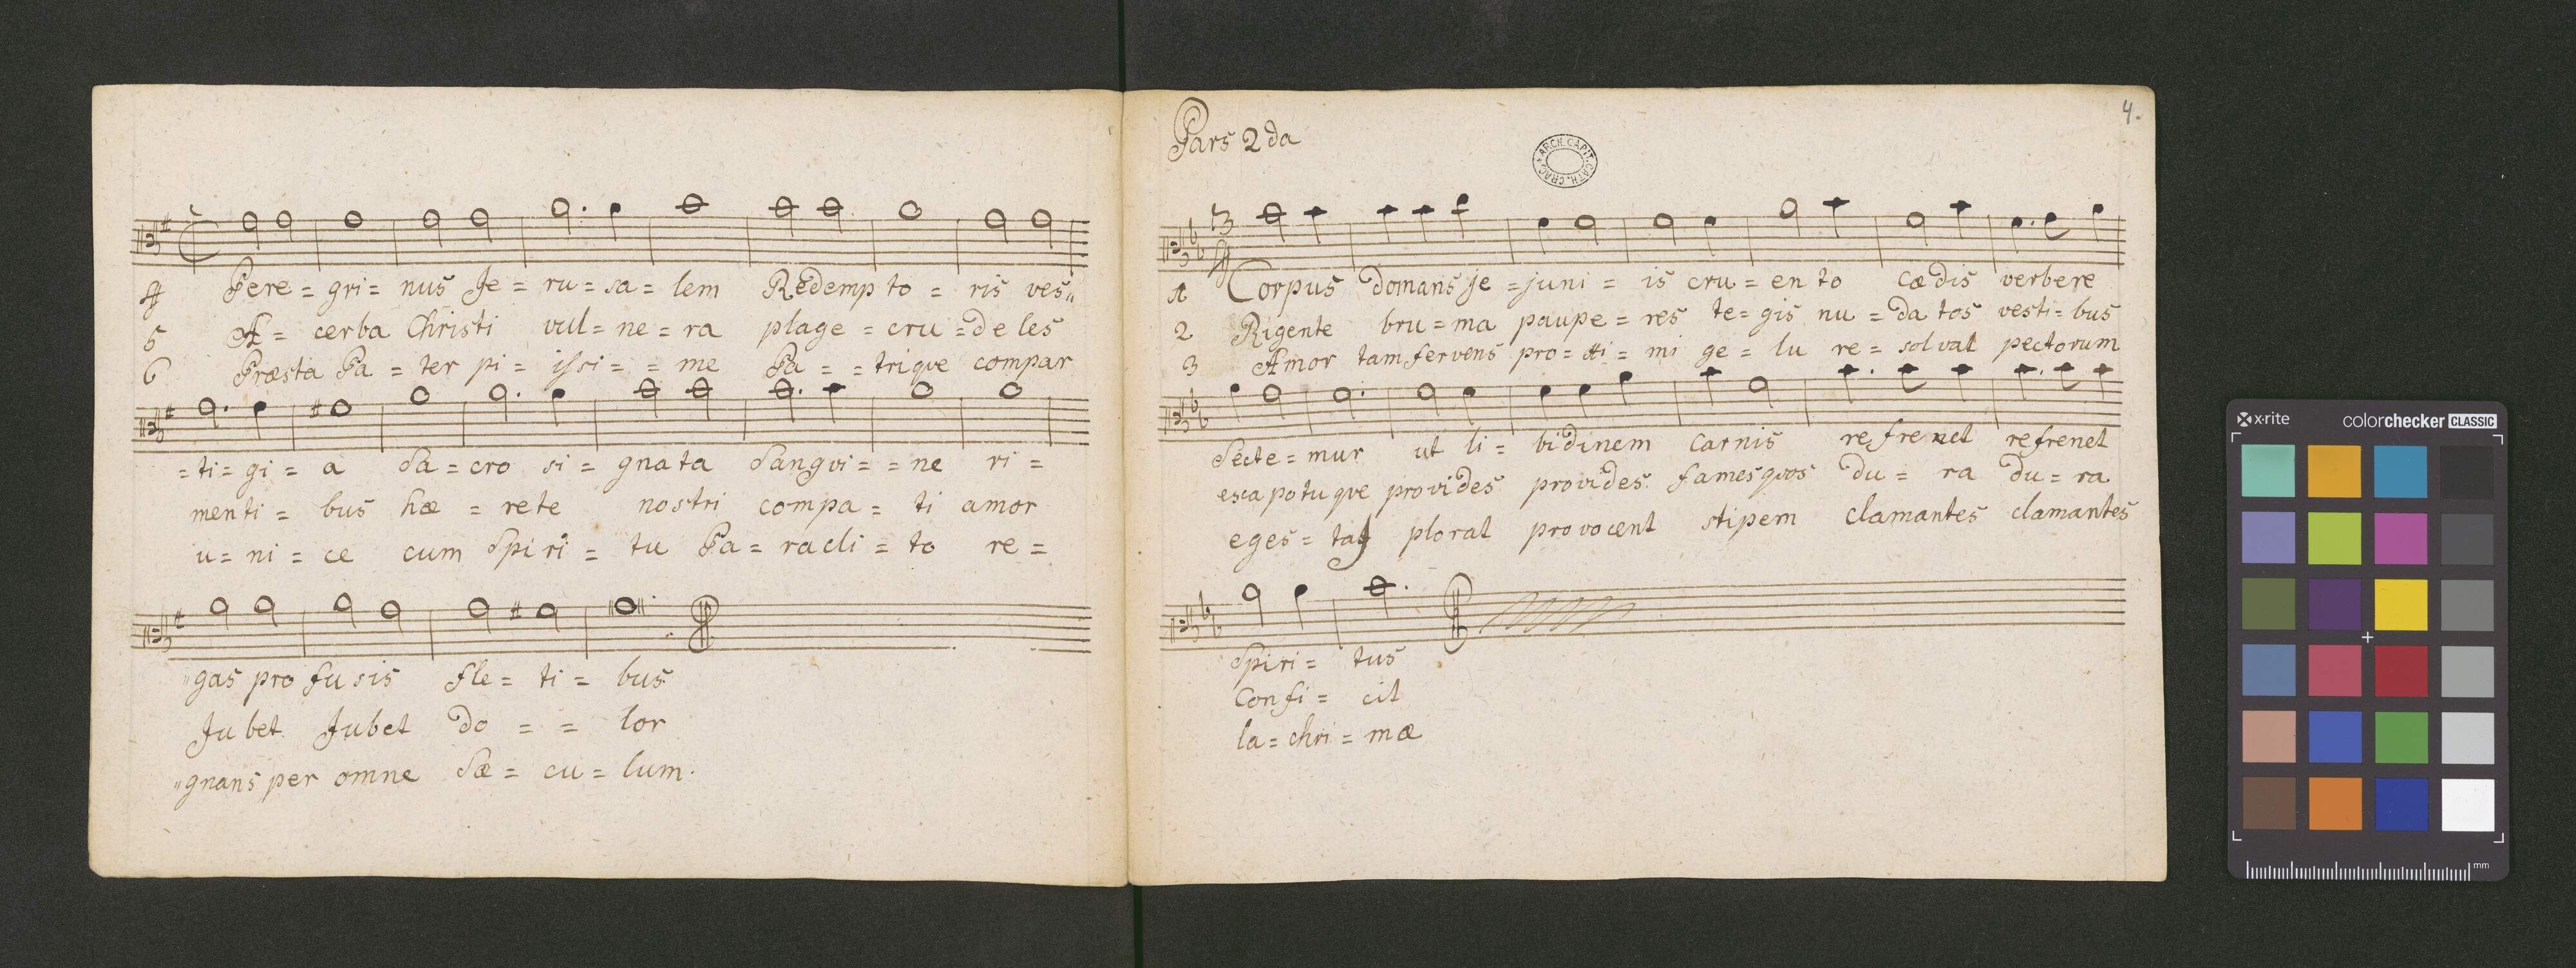 4 Pere = gri = nus Je = ru = sa = lem Redemp to = ris ves„
5 A = cerba Christi vul = ne = ra plage = cru = de les
6 Præsta Pa = ter pi = issi = = me Pa = = trique compar
= ti = gi = a Sa = cro si = gnata Sangvi = = ne ri =
menti = bus hæ = rete nostri compa = ti amor
u = ni = ce cum Spiri = tu Pa = racli = to re =
"gas pro fu sis fle = ti = bus
Jubet Jubet do = = lor
"gnans per omne Sæ = cu = lum.
4.
Pars 2da
ARCH. CAPIT. CATH. CRAC.
3
1 Corpus domans je = juni = is cru = en to cædis verbere
2 Rigente bru = ma paupe = res te = gis nu = da tos vesti = bus
3 Amor tam fervens pro = xi = mi ge = lu re = solvat pectorum
Secte = mur ut li = bidinem carnis refrenet refrenet
esca potu qve provides provides fames qvos du = ra du = ra
eges = tas plorat provocent stipem clamantes clamantes
Spiri = tus
Confi = cit
la = chri = mæ
x·rite
colorchecker CLASSIC
mm